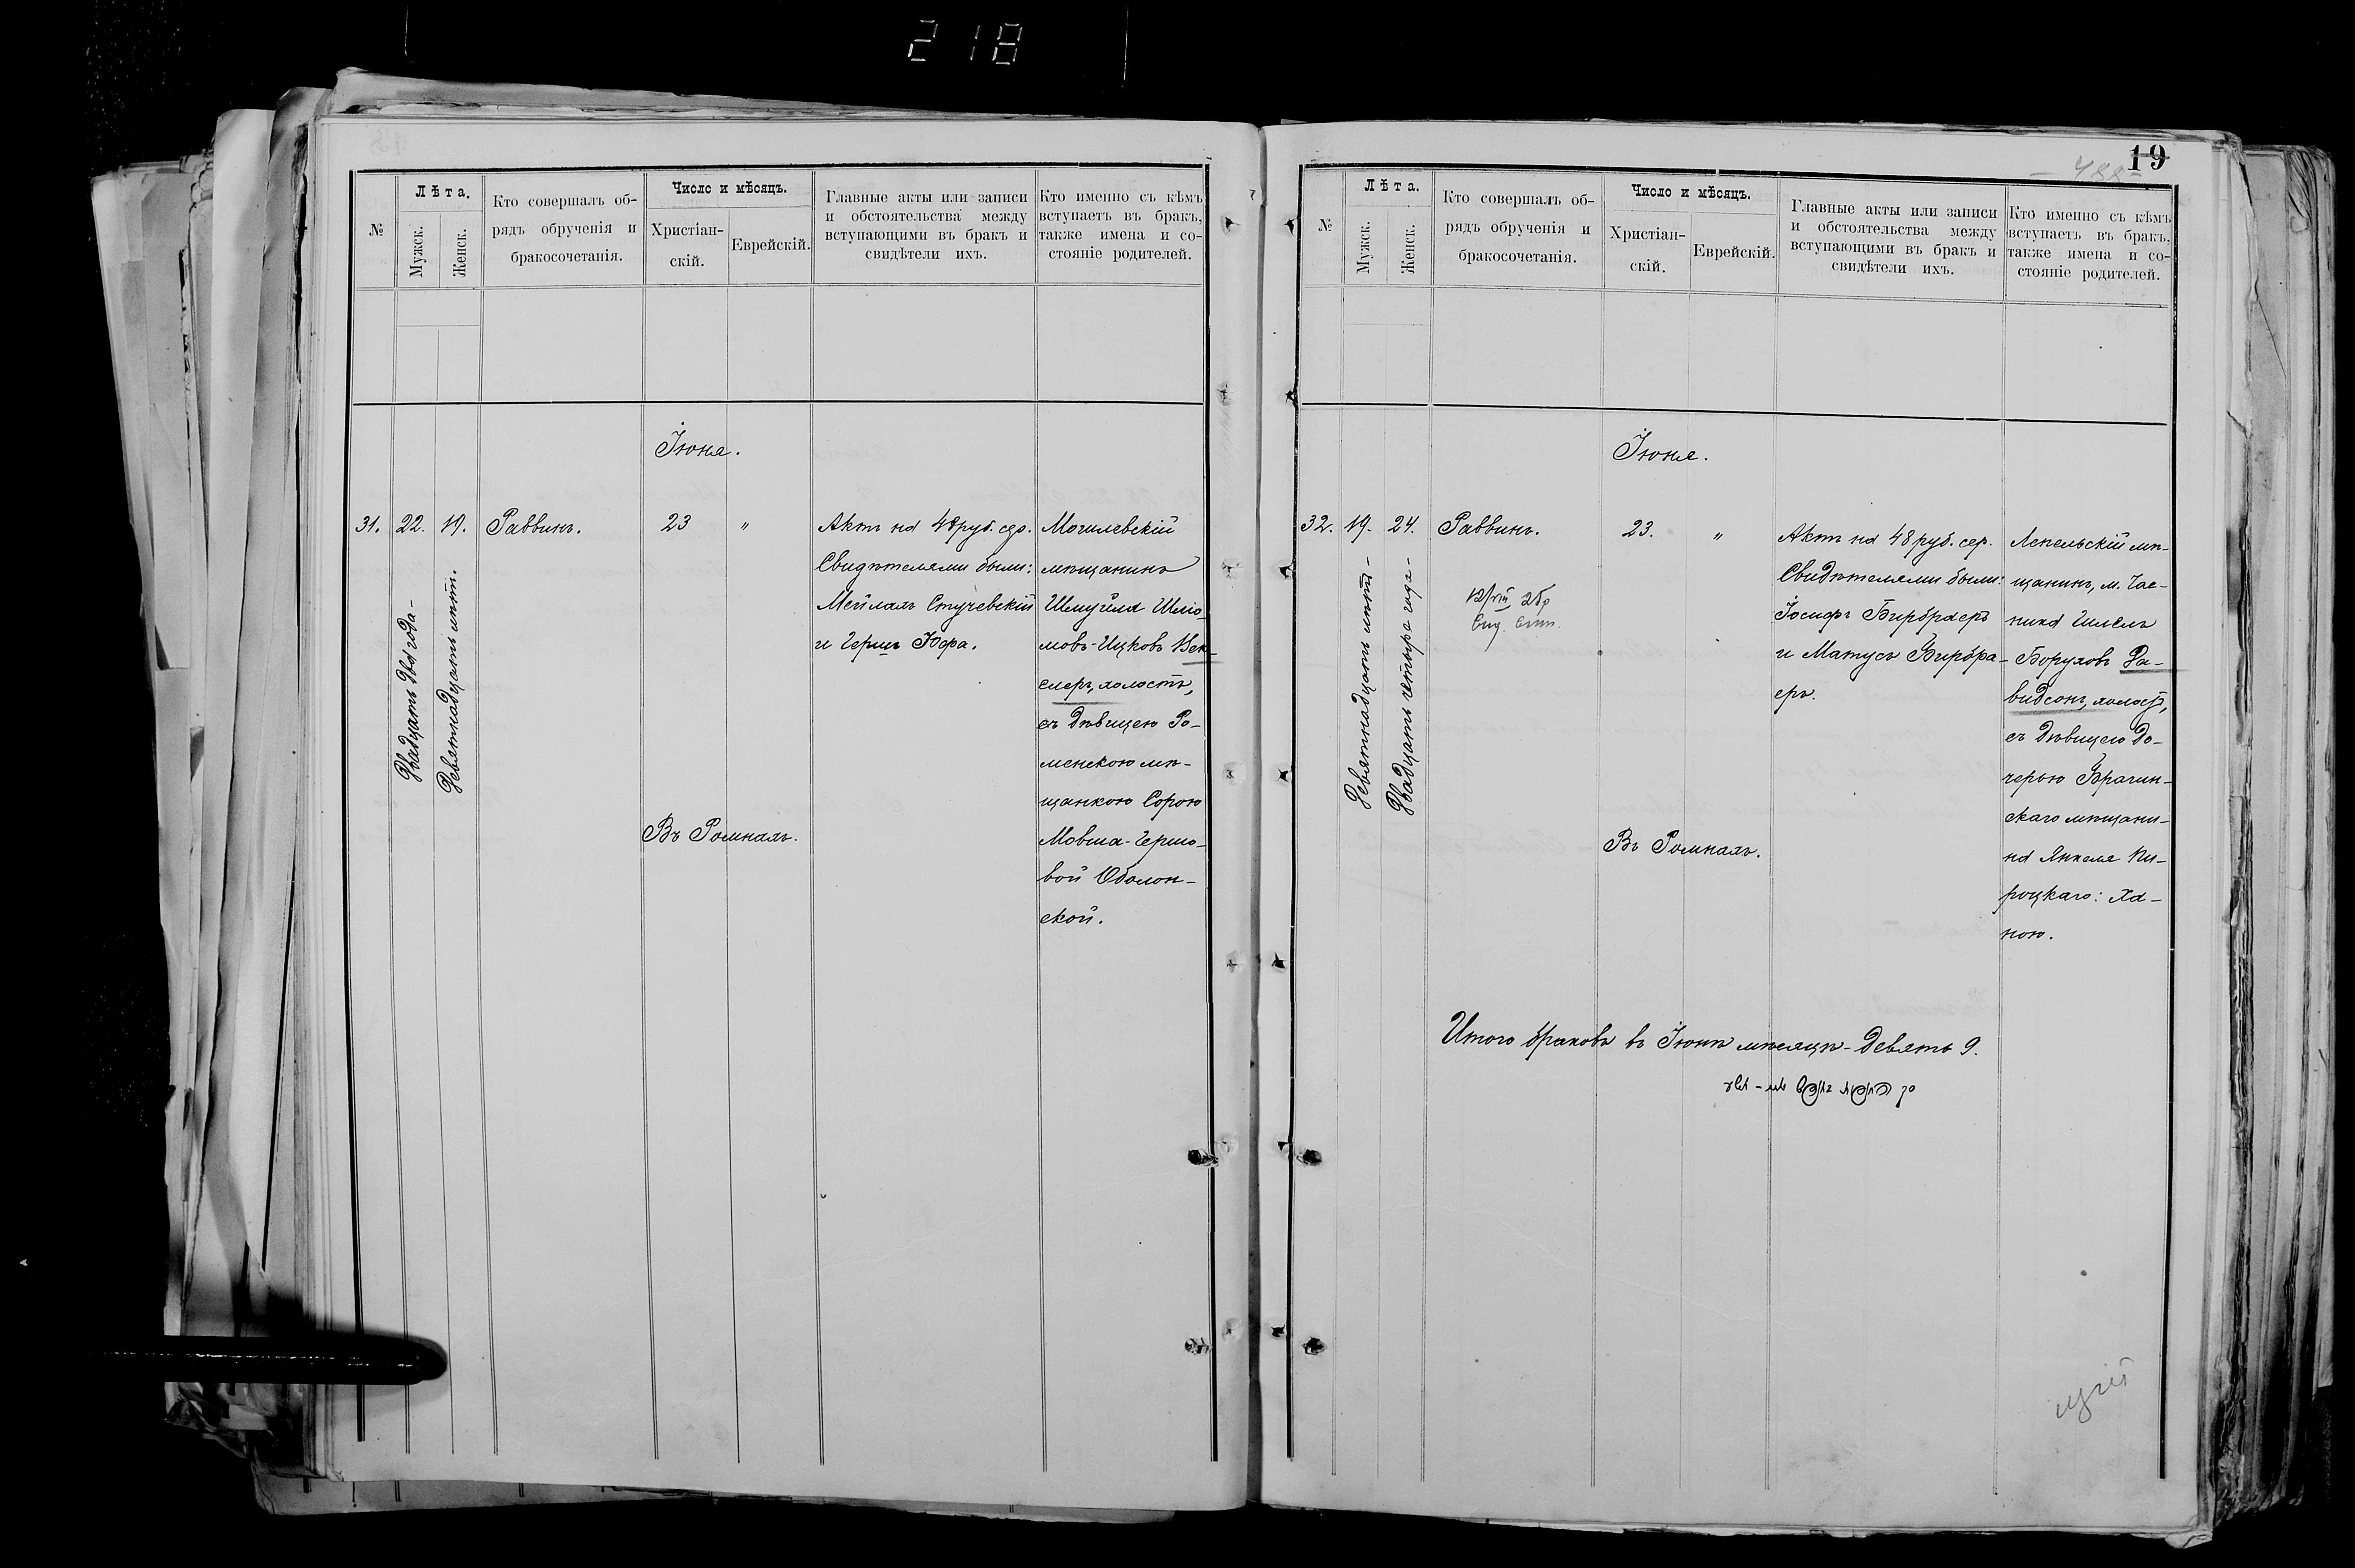 218
№
Лѣта.
Мужск.
Женск.
Кто совершалъ об-
рядъ обрученія и
бракосочетанія.
Число и мѣсяцъ.
Христіан-
скій.
Еврейскій.
Главные акты или записи
и обстоятельства между
вступающими въ бракъ и
свидѣтели ихъ.
Кто именно съ кѣмъ
вступаетъ въ бракъ,
также имена и со-
стояніе родителей.
Іюня.
31.
22.
Двадцать два года -
19.
Девятнадцать лѣтъ.
Раввинъ.
23
"
Въ Ромнахъ.
Актъ на 48 руб. сер.
Свидѣтелями были:
Мейлахъ Стучевскій
и Гершъ Юфа.
Могилевскій
мѣщанинъ
Шмуйла Шліо-
мовъ-Ицковъ Век-
слеръ, холостъ,
съ дѣвицею Ро-
менскою мѣ-
щанкою Сорою
Мовша-Гершо-
вой Оболон-
ской.
19
- 488 -
№
Лѣта.
Мужск.
Женск.
Кто совершалъ об-
рядъ обрученія и
бракосочетанія.
Число и мѣсяцъ.
Христіан-
скій.
Еврейскій.
Главные акты или записи
и обстоятельства между
вступающими въ бракъ и
свидѣтели ихъ.
Кто именно съ кѣмъ
вступаетъ въ бракъ,
также имена и со-
стояніе родителей.
Іюня.
32.
19.
Девятнадцать лѣтъ -
24.
Двадцать четыре года -
Раввинъ.
12/VIII 26
23.
"
Въ Ромнахъ.
Актъ на 48 руб. сер.
Свидѣтелями были:
Іосифъ Бирбраеръ
и Матусъ Бирбра-
еръ.
Лепельскій мѣ-
щанинъ, м. Чаш-
ника
Боруховъ Да-
видсонъ, холостъ,
съ дѣвицею до-
черью Брагин-
скаго мѣщани-
на Янкеля Пи-
роцкаго: Ха-
ною.
Итого браковъ въ Іюнѣ мѣсяцѣ - девять 9.